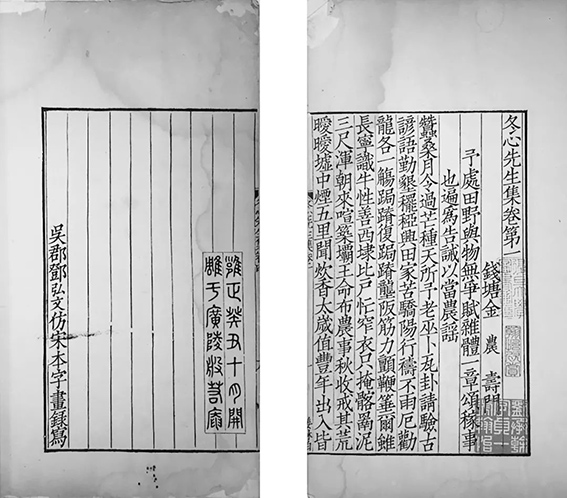 冬心先生集卷第一
錢塘金 農 壽門
予處田野與物無爭賦雜體一章頌稼事
也遍寫告誡以當農謡
蠶桑月令過芒種天所予老巫卜瓦卦請驗古
諺語勤墾穲稏興田家苦驕陽行禱不雨厄勸
龍各一觴跼蹐復跼蹐壟阪筋力顫鞭箠爾雖
長寧識牛性善西埭比戶忙窄衣只掩髂罱泥
三尺渾朝來喧築壩王命布農事秋收戒其荒
曖曖墟中煙五里聞炊香太歲值豐年出入皆
雍正癸丑十月開
雕于廣陵般若庵
吳郡鄧弘文仿宋本字畫錄寫